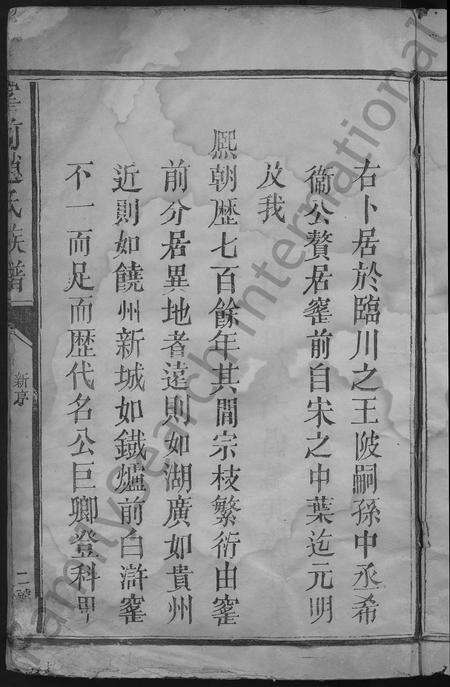 右卜居於臨川之王陂嗣孫中丞希
衞公贅居窰前自宋之中葉迄元明
及我
熙朝歴七百餘年其間宗枝繁衍由窰
前分居異地者遠則如湖廣如貴州
近則如饒州新城如鐵爐前白滸窰
不一而足而歴代名公巨卿登科甲
窰前趙氏族譜
新序
二號
FamilySearch International